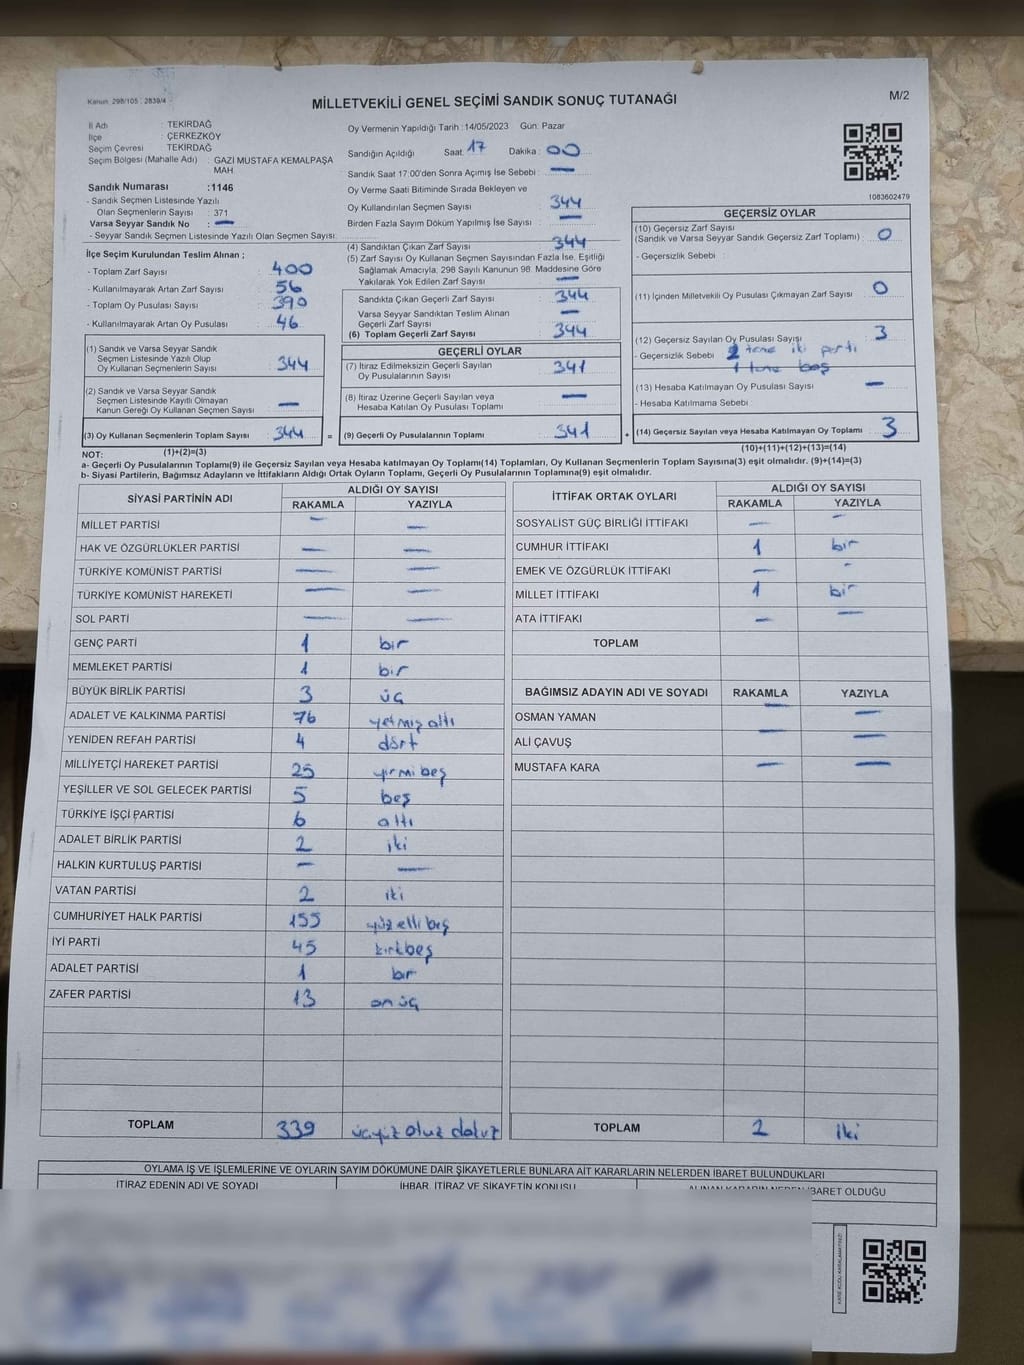 Kanun: 298/105 : 2839/4
MİLLETVEKİLİ GENEL SEÇİMİ SANDIK SONUÇ TUTANAĞI
M/2
İl Adı : TEKİRDAĞ
İlçe : ÇERKEZKÖY
Seçim Çevresi : TEKİRDAĞ
Seçim Bölgesi (Mahalle Adı) : GAZİ MUSTAFA KEMALPAŞA MAH.
Sandık Numarası :1146
- Sandık Seçmen Listesinde Yazılı
Olan Seçmenlerin Sayısı : 371
Varsa Seyyar Sandık No : —
- Seyyar Sandık Seçmen Listesinde Yazılı Olan Seçmen Sayısı:
İlçe Seçim Kurulundan Teslim Alınan ;
- Toplam Zarf Sayısı : 400
- Kullanılmayarak Artan Zarf Sayısı : 56
- Toplam Oy Pusulası Sayısı : 390
- Kullanılmayarak Artan Oy Pusulası : 46
(1) Sandık ve Varsa Seyyar Sandık
Seçmen Listesinde Yazılı Olup
Oy Kullanan Seçmenlerin Sayısı : 344
(2) Sandık ve Varsa Seyyar Sandık
Seçmen Listesinde Kayıtlı Olmayan
Kanun Gereği Oy Kullanan Seçmen Sayısı : —
(3) Oy Kullanan Seçmenlerin Toplam Sayısı : 344 =
(1)+(2)=(3)
Oy Vermenin Yapıldığı Tarih :14/05/2023 Gün: Pazar
Sandığın Açıldığı Saat: 17 Dakika : 00
Sandık Saat 17:00'den Sonra Açımış İse Sebebi : —
Oy Verme Saati Bitiminde Sırada Bekleyen ve
Oy Kullandırılan Seçmen Sayısı 344
Birden Fazla Sayım Döküm Yapılmış İse Sayısı : —
(4) Sandıktan Çıkan Zarf Sayısı 344
(5) Zarf Sayısı Oy Kullanan Seçmen Sayısından Fazla İse, Eşitliği
Sağlamak Amacıyla, 298 Sayılı Kanunun 98. Maddesine Göre
Yakılarak Yok Edilen Zarf Sayısı —
Sandıkta Çıkan Geçerli Zarf Sayısı : 344
Varsa Seyyar Sandıktan Teslim Alınan
Geçerli Zarf Sayısı : —
(6) Toplam Geçerli Zarf Sayısı : 344
GEÇERLİ OYLAR
(7) İtiraz Edilmeksizin Geçerli Sayılan
Oy Pusulalarının Sayısı : 341
(8) İtiraz Üzerine Geçerli Sayılan veya
Hesaba Katılan Oy Pusulası Toplamı : —
(9) Geçerli Oy Pusulalarının Toplamı : 341 +
1083602479
GEÇERSİZ OYLAR
(10) Geçersiz Zarf Sayısı
(Sandık ve Varsa Seyyar Sandık Geçersiz Zarf Toplamı) : 0
- Geçersizlik Sebebi :
(11) İçinden Milletvekili Oy Pusulası Çıkmayan Zarf Sayısı : 0
(12) Geçersiz Sayılan Oy Pusulası Sayısı : 3
- Geçersizlik Sebebi : 2 tane iki parti
1 tane boş
(13) Hesaba Katılmayan Oy Pusulası Sayısı : —
- Hesaba Katılmama Sebebi :
(14) Geçersiz Sayılan veya Hesaba Katılmayan Oy Toplamı : 3
(10)+(11)+(12)+(13)=(14)
NOT:
a- Geçerli Oy Pusulalarının Toplamı(9) ile Geçersiz Sayılan veya Hesaba katılmayan Oy Toplamı(14) Toplamları, Oy Kullanan Seçmenlerin Toplam Sayısına(3) eşit olmalıdır. (9)+(14)=(3)
b- Siyasi Partilerin, Bağımsız Adayların ve İttifakların Aldığı Ortak Oyların Toplamı, Geçerli Oy Pusulalarının Toplamına(9) eşit olmalıdır.
SİYASİ PARTİNİN ADI ALDIĞI OY SAYISI
RAKAMLA YAZIYLA
MİLLET PARTİSİ — —
HAK VE ÖZGÜRLÜKLER PARTİSİ — —
TÜRKİYE KOMÜNİST PARTİSİ — —
TÜRKİYE KOMÜNİST HAREKETİ — —
SOL PARTİ — —
GENÇ PARTİ 1 bir
MEMLEKET PARTİSİ 1 bir
BÜYÜK BİRLİK PARTİSİ 3 üç
ADALET VE KALKINMA PARTİSİ 76 yetmiş altı
YENİDEN REFAH PARTİSİ 4 dört
MİLLİYETÇİ HAREKET PARTİSİ 25 yirmi beş
YEŞİLLER VE SOL GELECEK PARTİSİ 5 beş
TÜRKİYE İŞÇİ PARTİSİ 6 altı
ADALET BİRLİK PARTİSİ 2 iki
HALKIN KURTULUŞ PARTİSİ — —
VATAN PARTİSİ 2 iki
CUMHURİYET HALK PARTİSİ 155 yüz elli beş
İYİ PARTİ 45 kırkbeş
ADALET PARTİSİ 1 bir
ZAFER PARTİSİ 13 on üç
TOPLAM 339 üçyüz otuz dokuz
İTTİFAK ORTAK OYLARI ALDIĞI OY SAYISI
RAKAMLA YAZIYLA
SOSYALİST GÜÇ BİRLİĞİ İTTİFAKI — —
CUMHUR İTTİFAKI 1 bir
EMEK VE ÖZGÜRLÜK İTTİFAKI — —
MİLLET İTTİFAKI 1 bir
ATA İTTİFAKI — —
TOPLAM
BAĞIMSIZ ADAYIN ADI VE SOYADI RAKAMLA YAZIYLA
OSMAN YAMAN — —
ALİ ÇAVUŞ — —
MUSTAFA KARA — —
TOPLAM 2 iki
OYLAMA İŞ VE İŞLEMLERİNE VE OYLARIN SAYIM DÖKÜMÜNE DAİR ŞİKAYETLERLE BUNLARA AİT KARARLARIN NELERDEN İBARET BULUNDUKLARI
İTİRAZ EDENİN ADI VE SOYADI İHBAR, İTİRAZ VE ŞİKAYETİN KONUSU ALINAN KARARIN NEDEN İBARET OLDUĞU